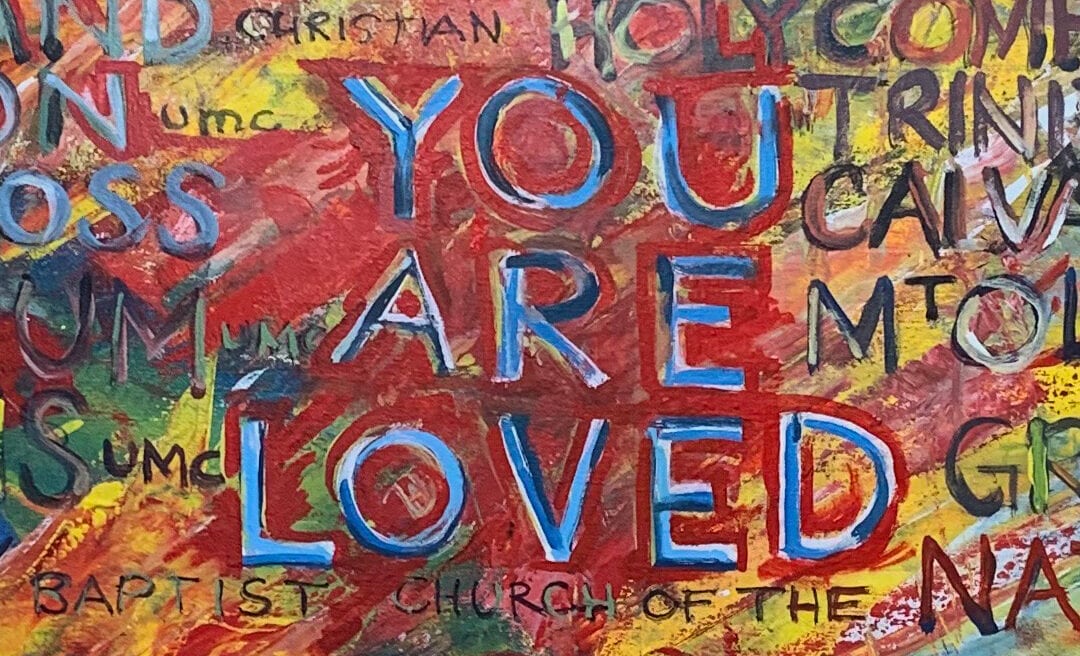 AND CHRISTIAN HOLY COM
ON UMC YOU TRINI
OSS CALVA
UM UMC ARE MT OL
S UMC LOVED GR
BAPTIST CHURCH OF THE NA